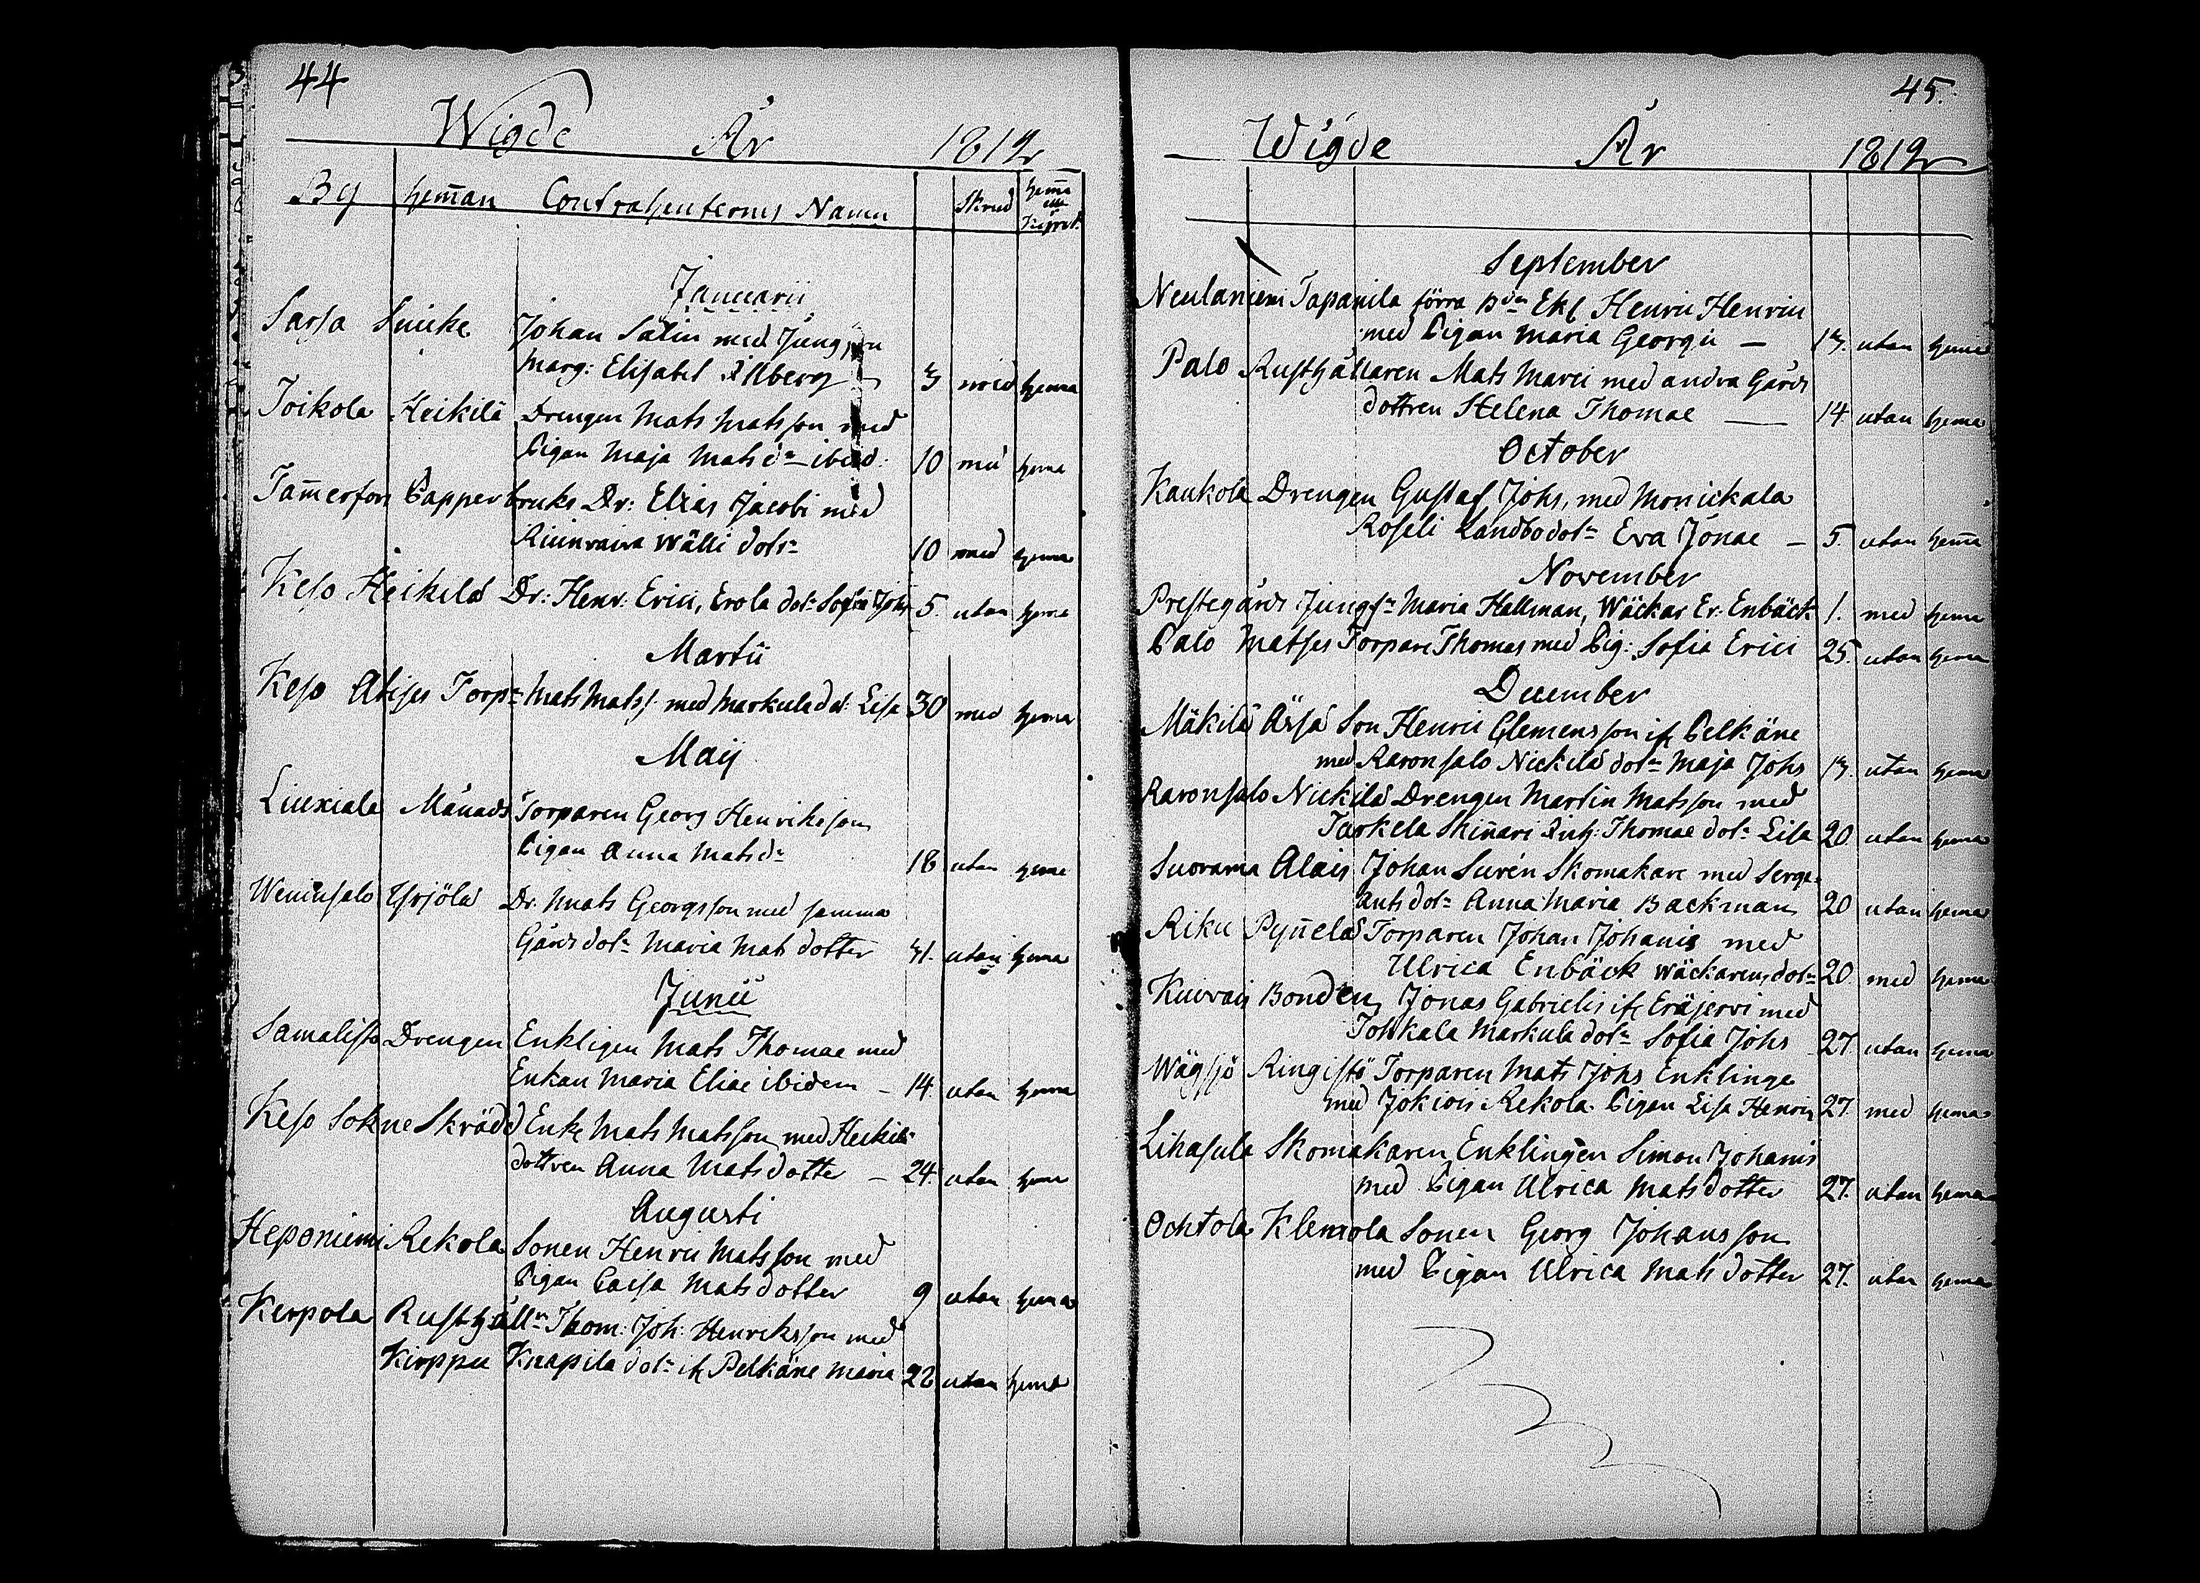 44
Wigde År 1812
By hem̄an Contrahenternes Namn Skrud hem̄a
Januarii
Sarsa Johan Salin med Jungfrun
Marg: Elisabet 3 med hema
Toikola Heikilä Drengen Mats Matsson med
Pigan Maja Mats dr ibid. 10 med hema
Tam̄erfors Papper bruks Dr: Elias Jacobi med
Wälli dotr 10 med hema
Keso Heikilä Dr: Henr: Erici, Erola dotr Sofia Johs 5. utan hema
Martii
Keso Torpr Mats Matss. med Markula dot: Lisa 30 med hema
Maij
Liuxiala Månads Torparen Georg Henriksson
Pigan Anna Matsdr 18 utan hema
Yrjölä Dr. Mats Georgsson med samma
Gårds dotr Maria Mats dotter 31. utan hema
Junii
Samalisto Drengen Enklingen Mats Thomae med
Enkan Maria Eliae ibidem – 14. utan hema
Keso Sohne Skrädd Enk. Mats Matsson med Heikilä
dottren Anna Matsdotter – 24. utan hema
Augusti
Heponiemi Rekola Sonen Henric Matsson med
Pigan Caisa Matsdotter 9 utan hema
Kerpola Rusthållr Thom: Joh: Henriksson med
Kirppu Knapila dotr if. Pelkäne Maria 28 utan hema
45.
Wigde År 1812
September
Neulaniemi Tapanila förra Bdn Enkl Henric Henrici
med Pigan Maria Georgii — 13. utan hema
Palo Rusthållaren Mats Marci med andra Gårds
dottren Helena Thomae — 14 utan hema
October
Kaukola Drengen Gustaf Johs, med Monickala
Roseli Landbodotr Eva Jonae – 5. utan hem̄a
November
Prestegårds Jungfr Maria Hallman, Wäckar Er. Enbäck 1. med hema
Palo Matses Torpare Thomas med Pig: Sofia Erici 25. utan hema
December
Mäkilä Äijälä Son Henric Clemensson if. Pelkäne
med Raronsalo Nickilä dotr Maja Johs 13. utan hema
Raronsalo Nickilä Drengen Martin Matsson med
Tarkela Skin̄ari Inh: Thomae dotr Lisa 20 utan hema
Suorama Alais Johan Surén Skomakare med Serge-
ants dotr Anna Maria Backman 20 utan hema
Riku Pyn̄elä Torparen Johan Johanis med
Ulrica Enbäck Wäckarens dotr 20. med hema
Bonden Jonas Gabrielis if. Eräjervi med
Tohkala Markula dotr Sofia Johs 27. utan hema
Wägsjö Ringistö Torparen Mats Johs Enklinge
med Jokiois Rekola Pigan Lisa Henrici 27. med hema
Lihasula Skomakaren Enklingen Simon Johanis
med Pigan Ulrica Matsdotter 27. utan hema
Ochtola Klemola Sonen Georg Johansson
med Pigan Ulrica Mats dotter 27. utan hema